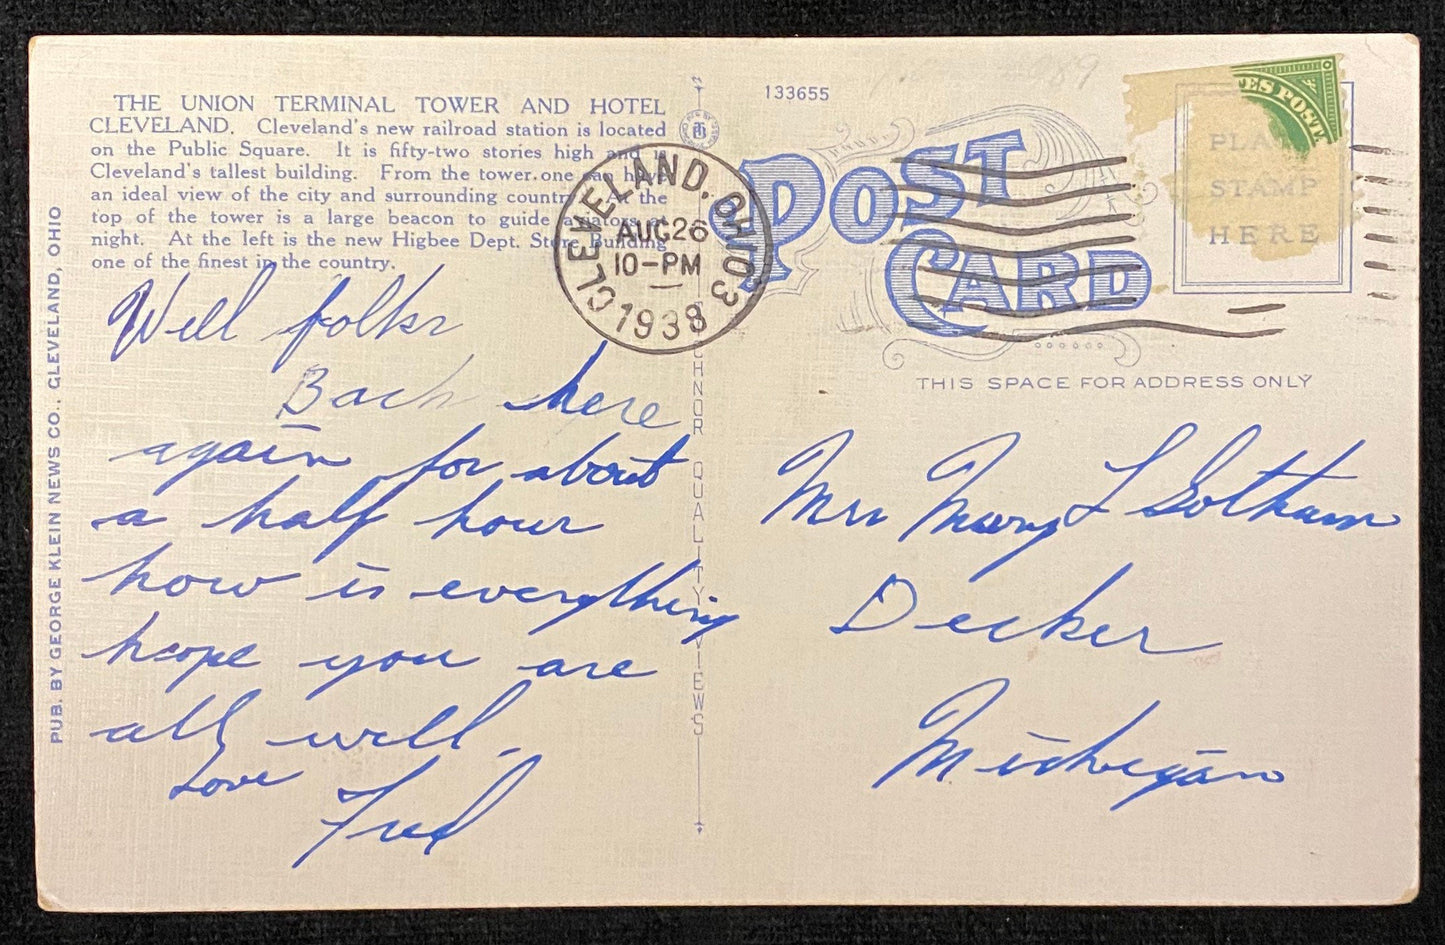 THE UNION TERMINAL TOWER AND HOTEL
CLEVELAND. Cleveland's new railroad station is located
on the Public Square. It is fifty-two stories high and is
Cleveland's tallest building. From the tower one can have
an ideal view of the city and surrounding country. At the
top of the tower is a large beacon to guide aviators at
night. At the left is the new Higbee Dept. Store Building
one of the finest in the country.
Well folks
Back here
again for about
a half hour
how is everything
hope you are
all well.
Love
Fred
PUB. BY GEORGE KLEIN NEWS CO., CLEVELAND, OHIO
CHNOR QUALITY VIEWS
133655
POST
CARD
CLEVELAND, OHIO 3
AUG 26
10-PM
1938
ES POST
PLA
STAMP
HERE
THIS SPACE FOR ADDRESS ONLY
Mrs Mary L Gotham
Decker
Michigan